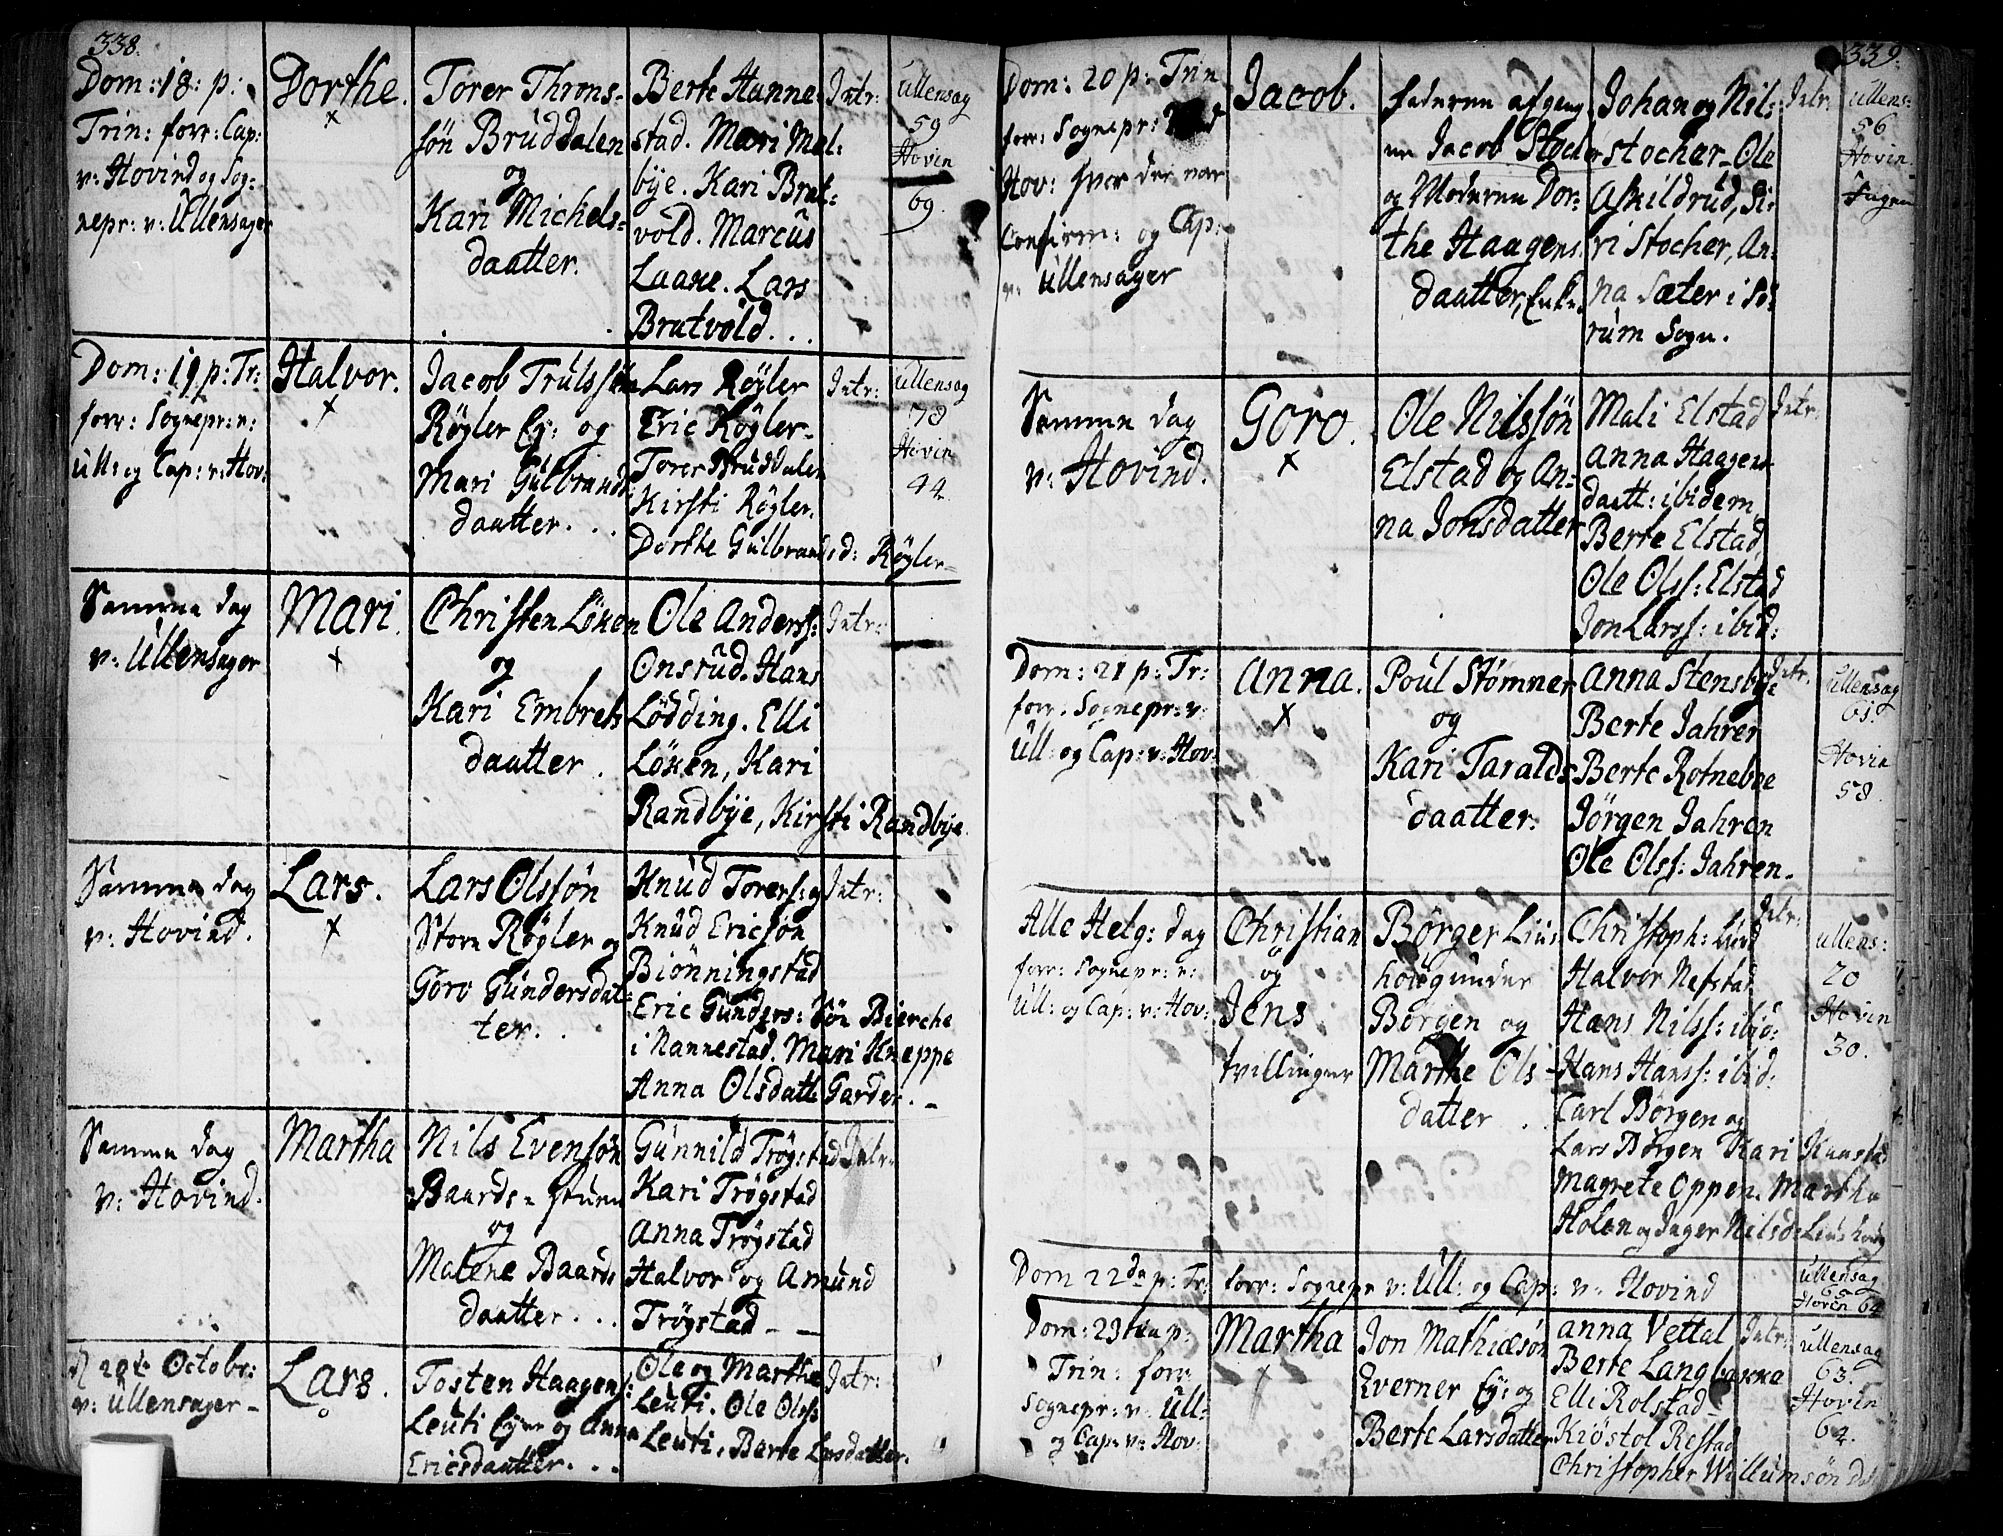 338.
Dom: 18: p:
Trin: forr: Cap:
v: Hovind og Sog-
nepr: v: Ullensager
Dorthe.
Torer Throns-
søn Bruddalen
og
Kari Michels-
daatter.
Berte Hanne-
stad. Mari Mel:
bye. Kari Brat-
vold. Marcus
Laane. Lars
Bratvold...
Intr:
Ullensag
59
Hovin
69
Dom: 19 p: Tr:
forr: Sognepr: v:
Ull: og Cap: v: Hov:
Halvor.
Jacob Trulssøn
Røgler Ey: og
Mari Gulbrands
daatter...
Lars Røgler
Eric Røgler-
Torer Bruddalen
Kirsti Røgler.
Dorthe Gulbrandsd: Røgler-
Intr:
Ullensag
78
Hovin
44.
Samme dag
v: Ullensager
Mari.
Christen Løken
og
Kari Embrets
daatter.
Ole Anderss:
Onsrud. Hans
Lødding. Elli
Løken, Kari
Randbye, Kirsti Randbye.
Intr:
Samme dag
v: Hovind.
Lars.
Lars Olssøn
Store Røgler og
Goro Gundersdat-
ter..
Knud Torers: og
Knud Ericsøn
Biønningstad
Eric Gunders: søn Bierche
i Nannestad. Mari Kneppe
Anna Olsdatt: Garder.-
Intr:
Samme dag
v: Hovind.
Martha
Nils Evensøn
Baards-stuen
og
Malene Baards
daatter...
Gunnild Trøgstad
Kari Trøgstad
Anna Trøgstad
Halvor og Amund
Trøgstad--
Intr:
d 20de Octobr:
v: Ullensager-
Lars.
Tosten Haagens:
Leuti Eyer og Anna
Ericsdaatter...
Ole og Marthe
Leuti. Ole Olss:
Leuti. Berte Larsdatter.
Intr:
339.
Dom: 20 p: Trin
forr: Sognepr: ved
Hov: hvor der var
Confirm: og Cap:
v: Ullensager
Jacob.
Faderen afgang-
ne Jacob Stocher
og Moderen Dor-
the Haagens
daatter, Enke.
Johan og Nil:
Stocher. Ole
Askildrud, Si-
ri Stocher, An-
na Sæter i Sø-
rum Sogn.
Intr.
Ullens:
56
Hovin
Ingen
Samme dag
v: Hovind.
Goro.
Ole Nilssøn
Elstad og An-
na Jonsdatter
Mali Elstad
Anna Haagens
daatt: ibidem
Berte Elstad,
Ole Olss: Elstad
Jon Larss: ibid:
Intr.
Dom: 21 p: Tr:
forr: Sognepr: v:
Ull: og Cap: v: Hov:
Anna.
Poul Stømner
og
Kari Taralds
daatter.
Anna Stensbye
Berte Jahren
Berte Rotneboe
Jørgen Jahren
Ole Olss: Jahren.
Intr.
Ullensag
61.
Hovin
58.
Alle Helg: dag
forr: Sognepr: v:
Ull: og Cap: v: Hov:
Christian
og
Jens
tvillinger
Børger Lius
houg under
Borgen og
Marthe Ols-
datter..
Christoph: Lund
Halvor Nefstad
Hans Nilss: ibid:
Hans Hanss: ibid:
Carl Børgen og
Lars Børgen Kari Kaasta
Magrete Oppen. Martha
Holen og Inger Nilsd: Leushoug
Intr.
Ullens:
20
Hovin
30.
Dom 22de p: Tr: forr: Sognepr v: Ull: og Cap: v: Hovind
Ullensag
60
Hovin 64
Dom: 23de p:
Trin: forr:
Sognepr: v: Ull:
og Cap: v: Hov:
Martha
Jon Mathiæsøn
Everner Ey: og
Berte Larsdatter
Anna Vettal
Berte Langbakke
Elli Rolstad
Kiøstol Restad
Christopher Willumsøn
Intr:
Ullensag
63.
Hovin
64.